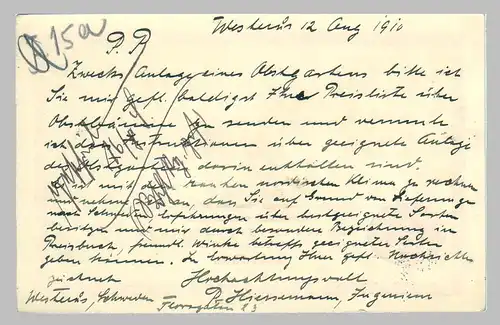 15a
Westerås 12 Aug 1910
P. P.
Zwecks Anlage eines Obstgartens bitte ich
Sie mir gefl. baldigst Ihre Preisliste über
Obstbäume zu senden und vermute
ich dass Informationen über geeignete Anlage
des Obstgartens darin enthalten sind.
mit rauhen nordischen Klima zu rechnen
und nehme an, dass Sie auf Grund von Lieferungen
nach Schweden Erfahrungen über bestgeeignete Sorten
besitzen und mir durch besondere Bezeichnung im
Preisbuch, freundl. Winke betreffs geeigneter Sorten
geben können. In Erwartung Ihrer gefl. Nachrichten
zeichnet Hochachtungsvoll
R. Hiersemann, Ingenieur
Westerås, Schweden
Floragatan 23